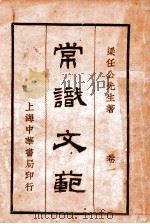 梁任公先生著
卷一
常識文範
上海中華書局印行